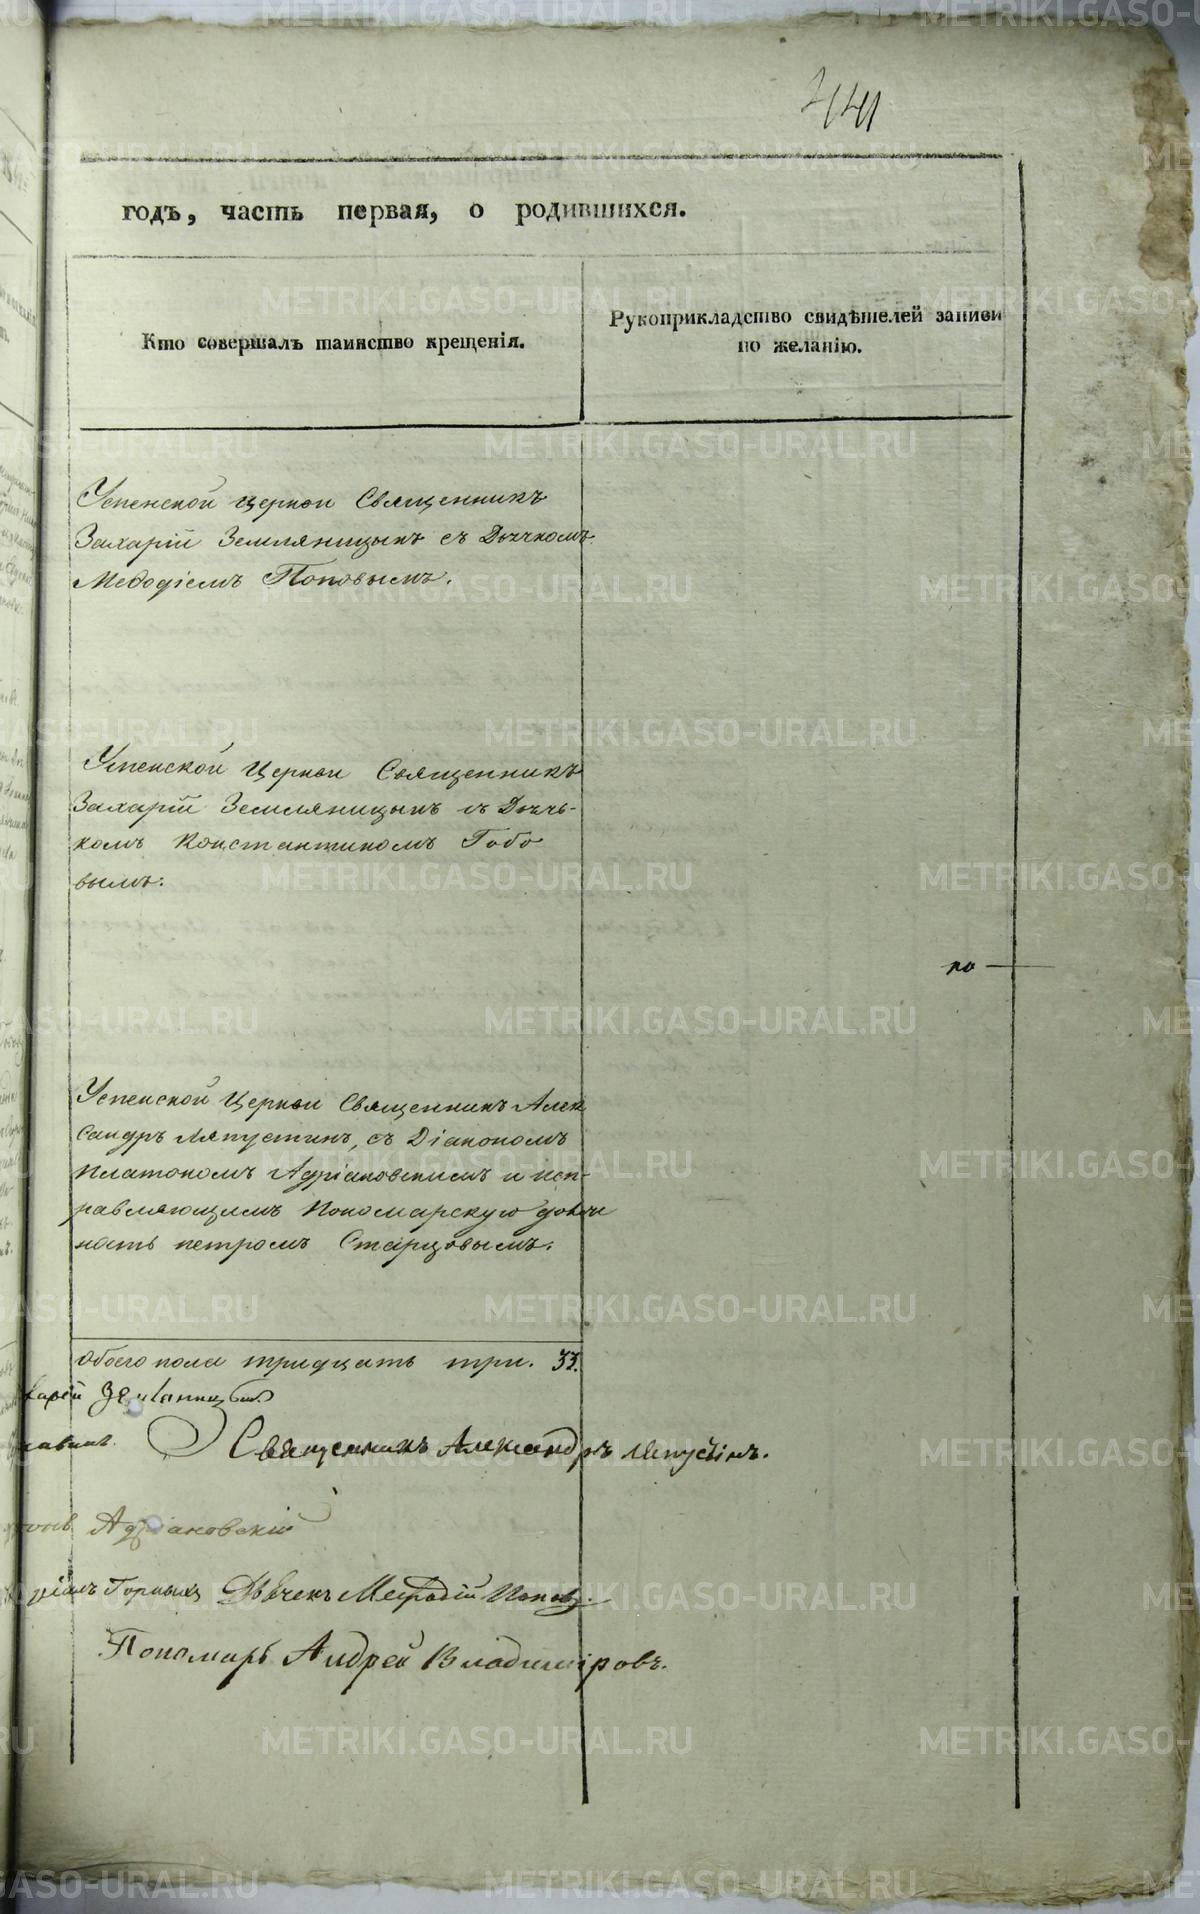 441
годъ, часть первая, о родившихся.
Кто совершалъ таинство крещенія.
Рукоприкладство свидѣтелей записи
по желанію.
Успенской Церкви Священникъ
Захарій Земляницынъ съ Дьячкомъ
Меѳодіемъ Поповымъ.
Успенской Церкви Священникъ
Захарій Земляницынъ съ Дьячь-
комъ Константиномъ Гобо
вымъ:
по
Успенской Церкви Священникъ Алек
сандръ Ляпустинъ, съ Діакономъ
Платономъ Адріановскимъ и исп-
равляющимъ Пономарскую долж
ность петромъ Старцовымъ.
Обоего пола тридцать три. 33.
харій Земляницынъ
Священникъ Александръ Ляпустинъ.
Адріановскій
Горныхъ Дьячекъ Меѳодій Поповъ.
Пономарь Андрей Владиміровъ.
METRIKI.GASO-URAL.RU